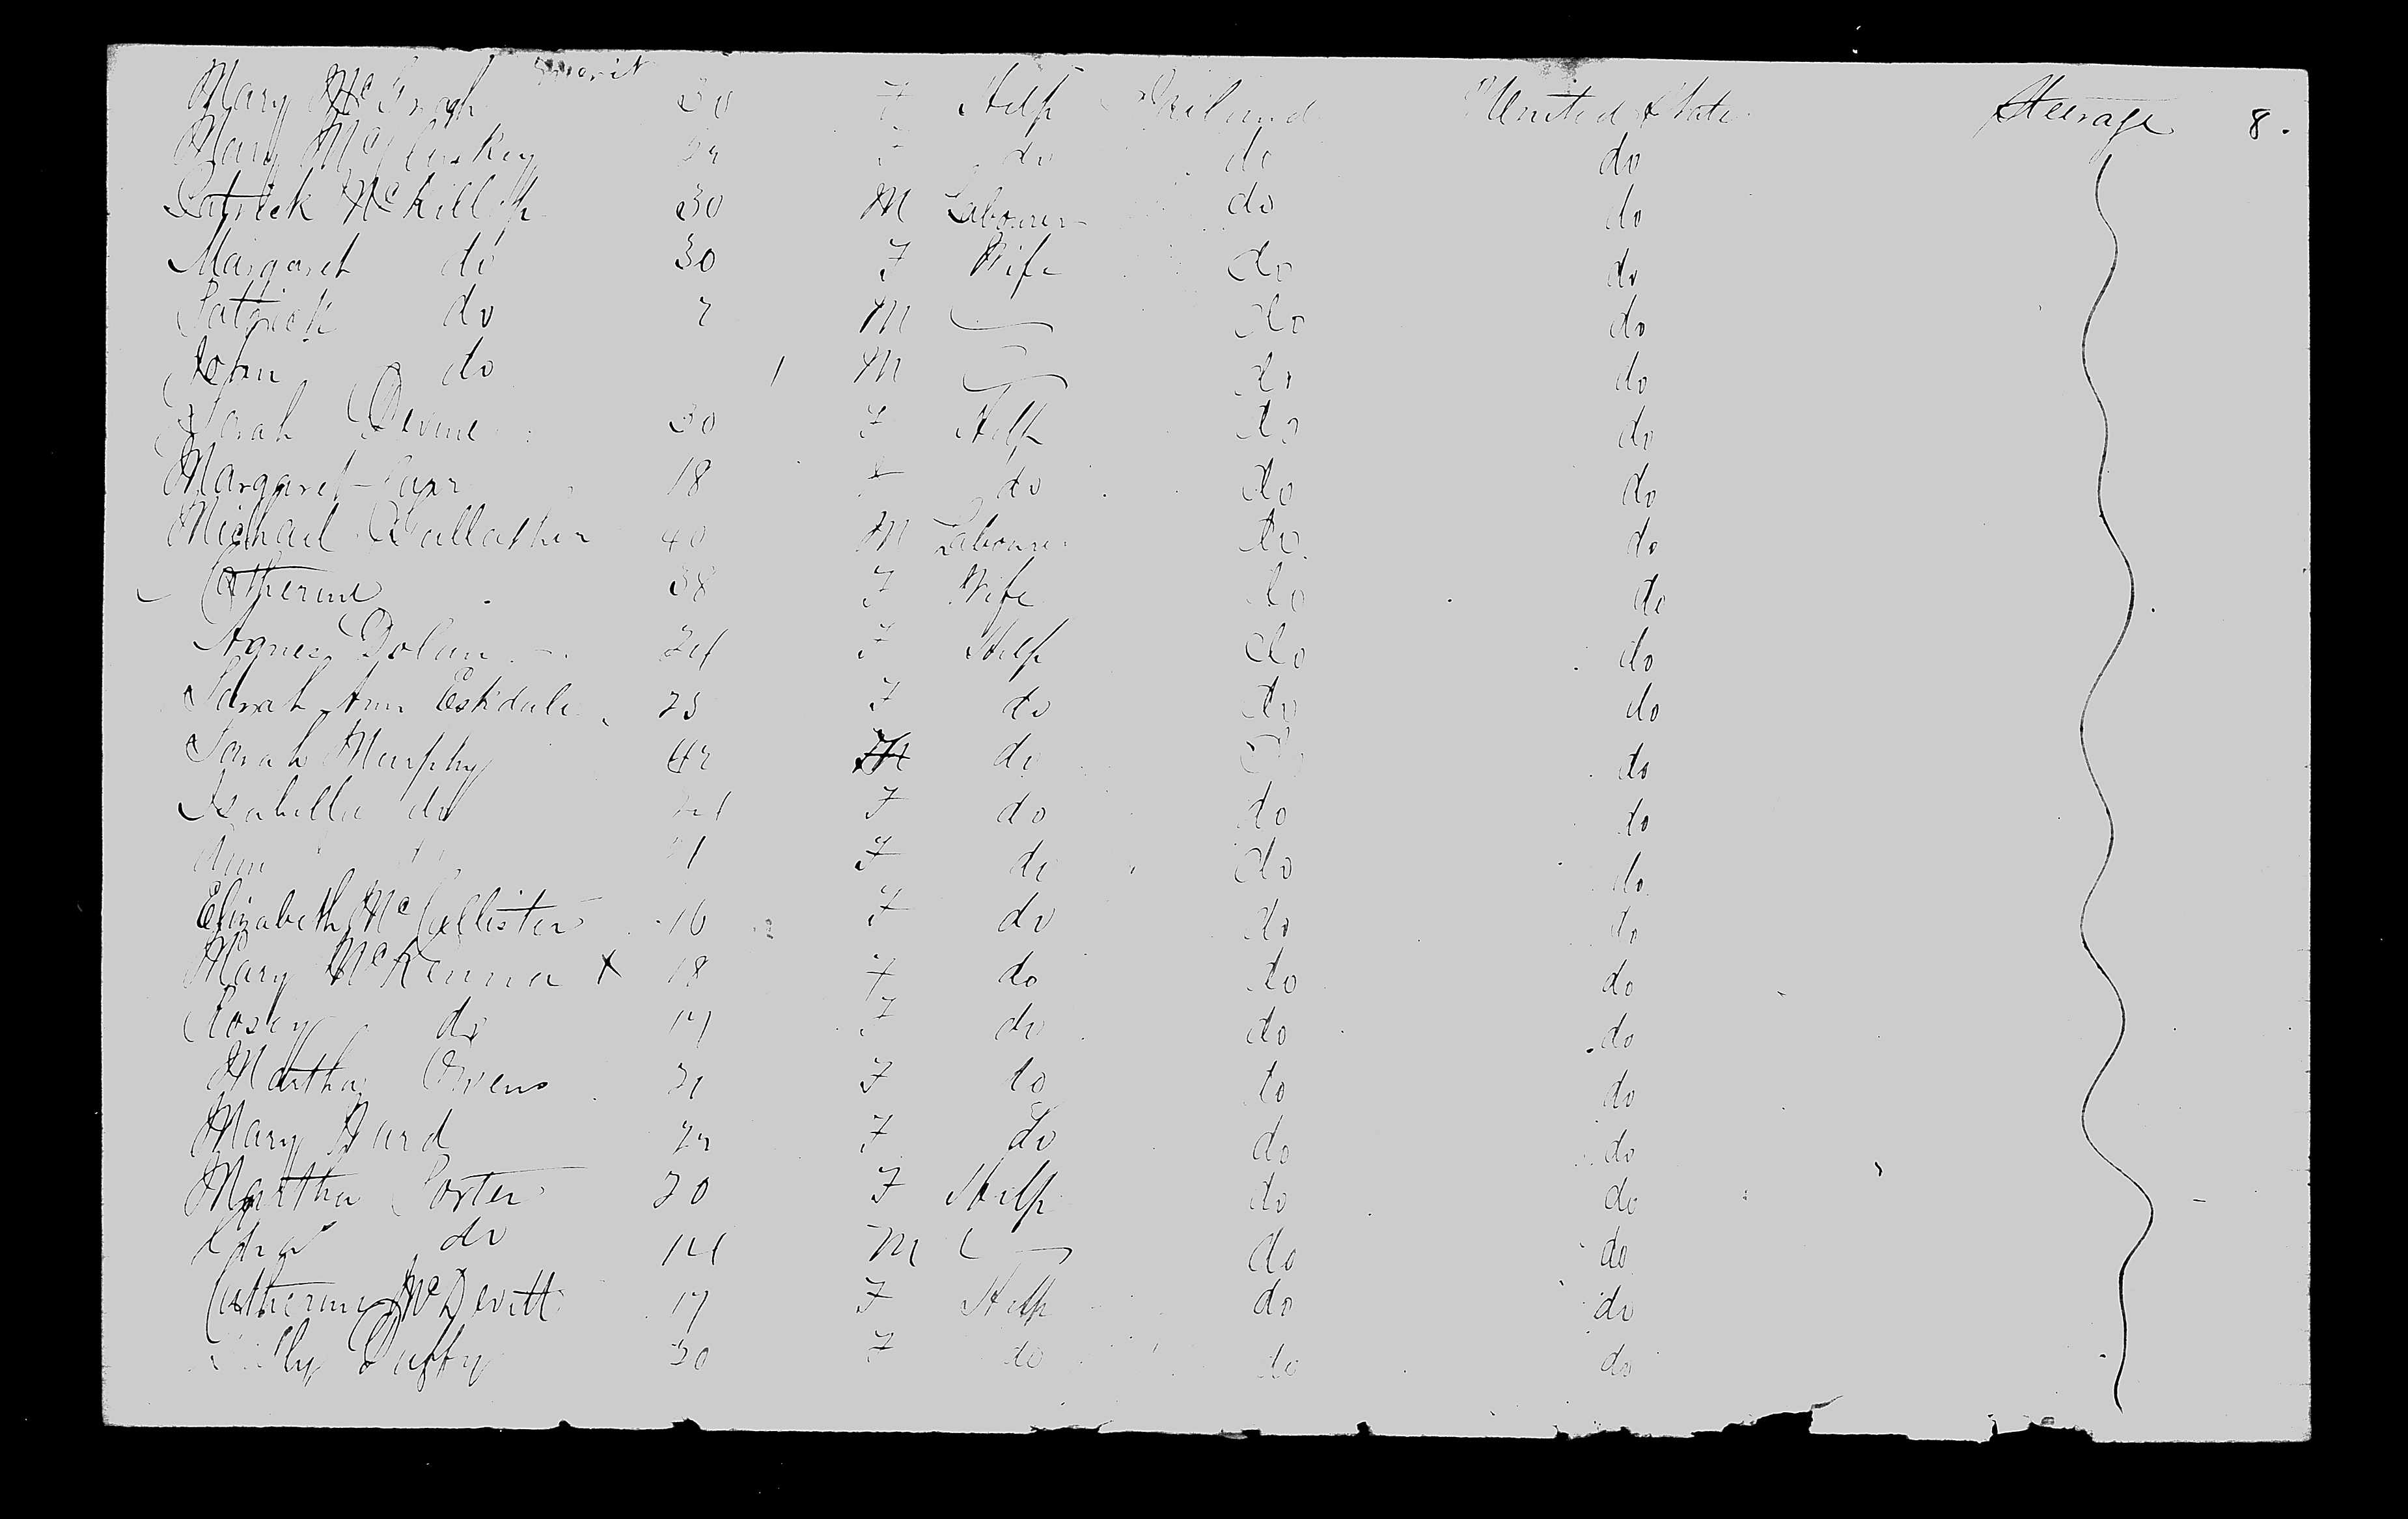 Mary McGrath 30 F Help Ireland United State Steerage 8.
Mary McCluskey F do do do
Patrick McKillop 30 M Labourer do do
Margaret do 30 F Wife do do
Patrick do M do do
John do 1 M do do
Sarah Devine 30 F Help do do
Margaret 18 F do do do
Michael Gallather 40 M Labourer do do
Catherine 38 F Wife do do
Agnes Dolan 24 F Help do do
Sarah Ann Eskdale 23 F do do do
Sarah Murphy 42 do do
Isabella do 24 F do do do
Ann F do do do
Elizabeth McCallister 16 F do do do
Mary McKenna x 18 F do do do
Rosey do 14 F do do do
Martha Owens 21 F do do do
Mary Ward 22 F do do do
Martha Porter 20 F Help do do
do 14 M do do
Catherine McDevitt 17 F Help do do
Duffy 30 F do do do